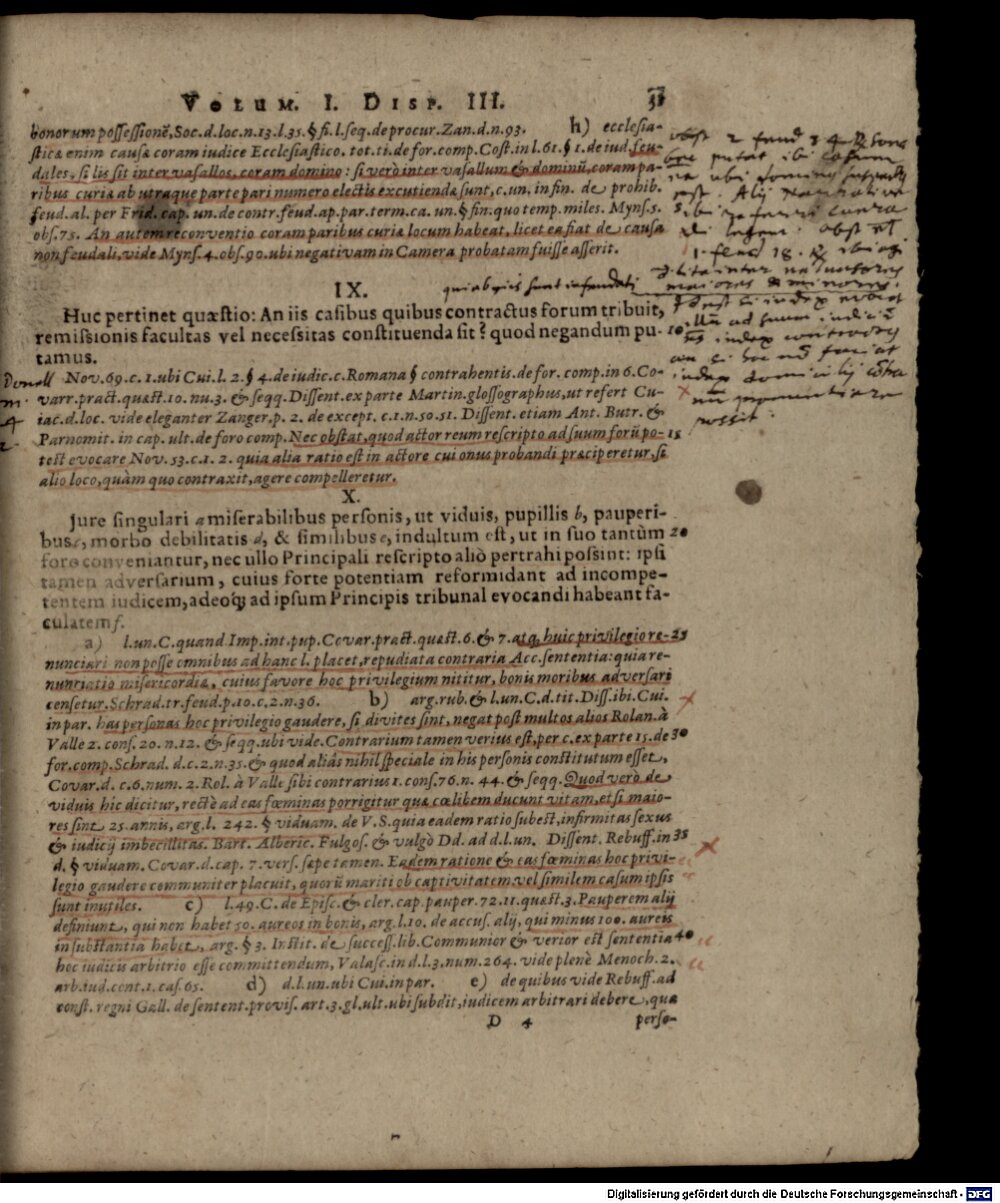 VOLUM. I. DISP. III.
bonorum possessionẽ, Soc. d. loc. n. 13. l. 35. § fi. l. seq. de procur. Zan. d. n. 93. h) ecclesia-
sticæ enim causæ coram iudice Ecclesiastico. tot. ti. de for. comp. Cost. in l. 61. § 1. de iud. feu-
dales, si lis sit inter vasallos, coram domino: si verò inter vasallum & dominũ, coram pa-
ribus curiæ ab utraque parte pari numero electis excutiendæ sunt, c. un. in fin. de prohib.
feud. al. per Frid. cap. un. de contr. feud. ap. par. term. ca. un. § fin. quo temp. miles. Myns. 5.
obs. 75. An autem reconventio coram paribus curiæ locum habeat, licet ea fiat de causa
non feudali, vide Myns. 4. obs. 90. ubi negativam in Camera probatam fuisse asserit.
IX.
Huc pertinet quæstio: An iis casibus quibus contractus forum tribuit,
remissionis facultas vel necessitas constituenda sit? quod negandum pu- 10
tamus.
Nov. 69. c. 1. ubi Cui. l. 2. § 4. de iudic. c. Romana § contrahentis. de for. comp. in 6. Co-
varr. pract. quæst. 10. nu. 3. & seqq. Dissent. ex parte Martin. glossographus, ut refert Cu-
iac. d. loc. vide eleganter Zanger. p. 2. de except. c. 1. n. 50. 51. Dissent. etiam Ant. Butr. &
Parnomit. in cap. ult. de foro comp. Nec obstat, quod actor reum rescripto ad suum forũ po- 15
test evocare Nov. 53. c. 1. 2. quia alia ratio est in actore cui onus probandi præciperetur, si
alio loco, quàm quo contraxit, agere compelleretur.
X.
Jure singulari a miserabilibus personis, ut viduis, pupillis b, pauperi-
bus c, morbo debilitatis d, & similibus e, indultum est, ut in suo tantùm 20
foro conveniantur, nec ullo Principali rescripto aliò pertrahi possint: ipsi
tamen adversarium, cuius forte potentiam reformidant ad incompe-
tentem iudicem, adeoq; ad ipsum Principis tribunal evocandi habeant fa-
cultatem f.
a) l. un. C. quand Imp. int. pup. Covar. pract. quæst. 6. & 7. atq; huic privilegio re- 25
nunciari non posse omnibus ad hanc l. placet, repudiata contraria Acc. sententia: quia re-
nunciatio misericordiæ, cuius favore hoc privilegium nititur, bonis moribus adversari
censetur. Schrad. tr. feud. p. 10. c. 2. n. 36. b) arg. rub. & l. un. C. d. tit. Diss. ibi. Cui.
in par. has personas hoc privilegio gaudere, si divites sint, negat post multos alios Rolan. à
Valle 2. cons. 20. n. 12. & seqq. ubi vide. Contrarium tamen verius est, per c. ex parte 15. de 30
for. comp. Schrad. d. c. 2. n. 35. & quod aliàs nihil speciale in his personis constitutum esset,
Covar. d. c. 6. num. 2. Rol. à Valle sibi contrarius 1. cons. 76. n. 44. & seqq. Quod verò de
viduis hic dicitur, rectè ad eas fœminas porrigitur quæ cœlibem ducunt vitam, etsi maio-
res sint 25. annis, arg. l. 242. § viduam. de V. S. quia eadem ratio subest, infirmitas sexus
& iudicij imbecillitas. Bart. Alberic. Fulgos. & vulgò Dd. ad d. l. un. Dissent. Rebuff. in 35
d. § viduam. Covar. d. cap. 7. vers. sæpe tamen. Eadem ratione & eas fœminas hoc privi-
legio gaudere communiter placuit, quorũ mariti ob captivitatem vel similem casum ipsis
sunt inutiles. c) l. 49. C. de Episc. & cler. cap. pauper. 72. 11. quæst. 3. Pauperem alij
definiunt, qui non habet 50. aureos in bonis, arg. l. 10. de accus. alij, qui minus 100. aureis
in substantia habet, arg. § 3. Instit. de success. lib. Communior & verior est sententia 40
hoc iudicis arbitrio esse committendum, Valasc. in d. l. 3. num. 264. vide plenè Menoch. 2.
arb. iud. cent. 1. cas. 65. d) d. l. un. ubi Cui. in par. e) de quibus vide Rebuff. ad
const. regni Gall. de sentent. provis. art. 3. gl. ult. ubi subdit, iudicem arbitrari debere, quæ
D 4 perso-
Digitalisierung gefördert durch die Deutsche Forschungsgemeinschaft - DFG